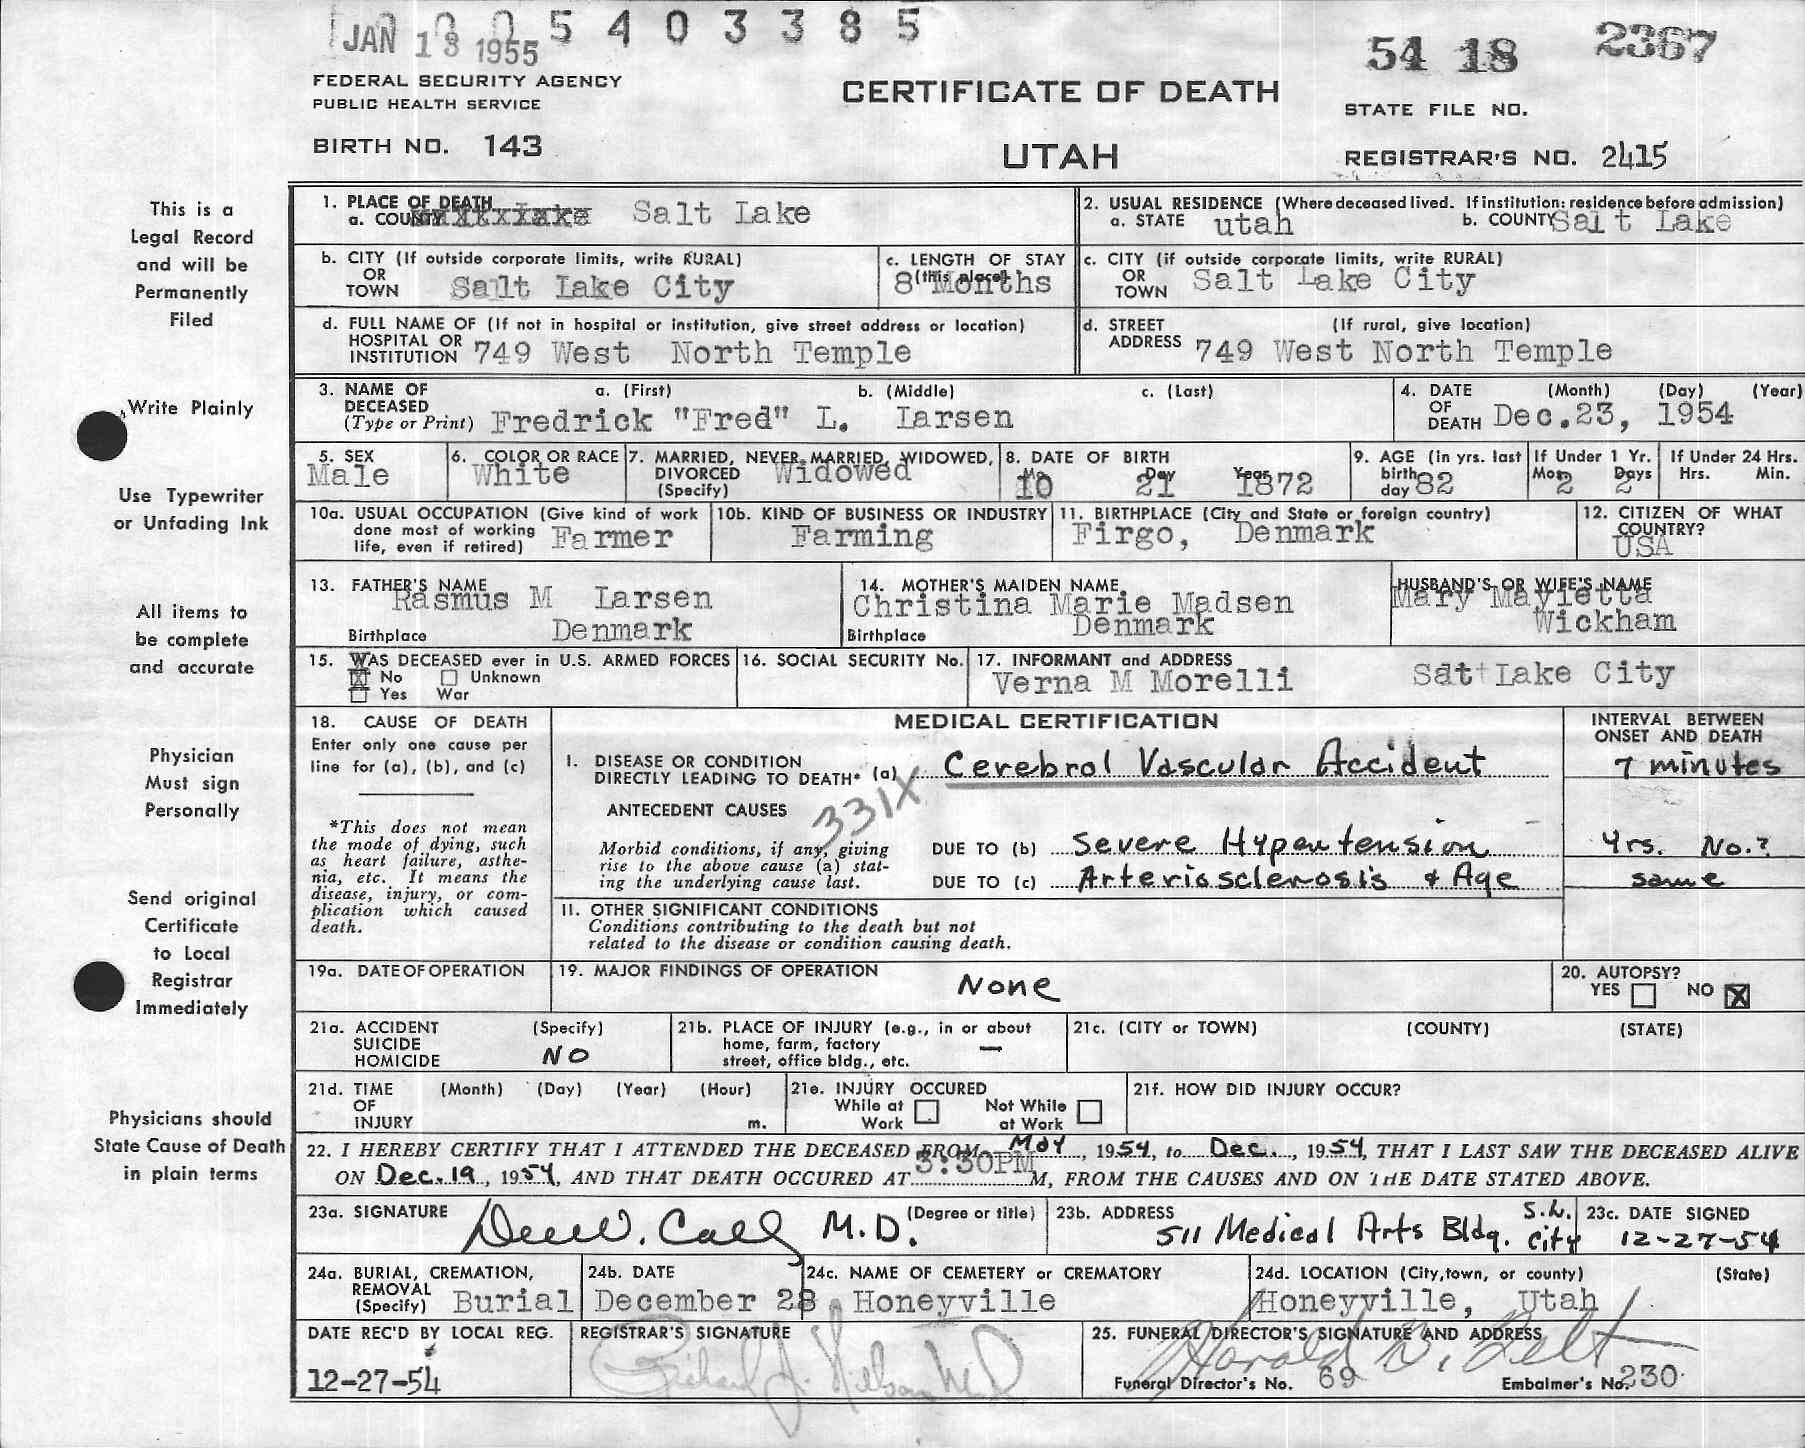 JAN 13 1955 0 0 5 4 0 3 3 8 5
54 18 2367
FEDERAL SECURITY AGENCY
PUBLIC HEALTH SERVICE
CERTIFICATE OF DEATH
STATE FILE NO.
BIRTH NO. 143
UTAH
REGISTRAR'S NO. 2415
This is a
Legal Record
and will be
Permanently
Filed
Write Plainly
Use Typewriter
or Unfading Ink
All items to
be complete
and accurate
Physician
Must sign
Personally
Send original
Certificate
to Local
Registrar
Immediately
Physicians should
State Cause of Death
in plain terms
1. PLACE OF DEATH
a. COUNTY Salt Lake
2. USUAL RESIDENCE (Where deceased lived. If institution: residence before admission)
a. STATE utah b. COUNTY Salt Lake
b. CITY (If outside corporate limits, write RURAL)
OR
TOWN Salt Lake City
c. LENGTH OF STAY
(this place)
8 Months
c. CITY (if outside corporate limits, write RURAL)
OR
TOWN Salt Lake City
d. FULL NAME OF (If not in hospital or institution, give street address or location)
HOSPITAL OR
INSTITUTION 749 West North Temple
d. STREET (If rural, give location)
ADDRESS 749 West North Temple
3. NAME OF a. (First) b. (Middle) c. (Last)
DECEASED
(Type or Print) Fredrick "Fred" L. Larsen
4. DATE (Month) (Day) (Year)
OF
DEATH Dec.23, 1954
5. SEX
Male
6. COLOR OR RACE
White
7. MARRIED, NEVER MARRIED, WIDOWED,
DIVORCED Widowed
(Specify)
8. DATE OF BIRTH
Mo Day Year
10 21 1872
9. AGE (in yrs. last
birth
day 82
If Under 1 Yr.
Mos Days
2 2
If Under 24 Hrs.
Hrs. Min.
10a. USUAL OCCUPATION (Give kind of work
done most of working
life, even if retired) Farmer
10b. KIND OF BUSINESS OR INDUSTRY
Farming
11. BIRTHPLACE (City and State or foreign country)
Firgo, Denmark
12. CITIZEN OF WHAT
COUNTRY?
USA
13. FATHER'S NAME
Rasmus M Larsen
Birthplace Denmark
14. MOTHER'S MAIDEN NAME
Christina Marie Madsen
Birthplace Denmark
HUSBAND'S OR WIFE'S NAME
Mary Mayietta
Wickham
15. WAS DECEASED ever in U.S. ARMED FORCES
No Unknown
Yes War
16. SOCIAL SECURITY No.
17. INFORMANT and ADDRESS
Verna M Morelli Sat Lake City
18. CAUSE OF DEATH
Enter only one cause per
line for (a), (b), and (c)
*This does not mean
the mode of dying, such
as heart failure, asthe-
nia, etc. It means the
disease, injury, or com-
plication which caused
death.
MEDICAL CERTIFICATION
INTERVAL BETWEEN
ONSET AND DEATH
I. DISEASE OR CONDITION
DIRECTLY LEADING TO DEATH* (a) Cerebral Vascular Accident 7 minutes
ANTECEDENT CAUSES
331X
Morbid conditions, if any, giving
rise to the above cause (a) stat-
ing the underlying cause last.
DUE TO (b) Severe Hypertension Yrs. No.?
DUE TO (c) Arteriosclerosis & Age same
II. OTHER SIGNIFICANT CONDITIONS
Conditions contributing to the death but not
related to the disease or condition causing death.
19a. DATE OF OPERATION
19. MAJOR FINDINGS OF OPERATION
None
20. AUTOPSY?
YES NO X
21a. ACCIDENT (Specify)
SUICIDE
HOMICIDE NO
21b. PLACE OF INJURY (e.g., in or about
home, farm, factory
street, office bldg., etc. —
21c. (CITY or TOWN) (COUNTY) (STATE)
21d. TIME (Month) (Day) (Year) (Hour)
OF
INJURY m.
21e. INJURY OCCURED
While at Not While
Work at Work
21f. HOW DID INJURY OCCUR?
22. I HEREBY CERTIFY THAT I ATTENDED THE DECEASED FROM May, 1954, to Dec., 1954, THAT I LAST SAW THE DECEASED ALIVE
ON Dec. 19, 1954, AND THAT DEATH OCCURED AT 3:30PM M, FROM THE CAUSES AND ON THE DATE STATED ABOVE.
23a. SIGNATURE (Degree or title)
M.D.
23b. ADDRESS
511 Medical Arts Bldg. S.L. City
23c. DATE SIGNED
12-27-54
24a. BURIAL, CREMATION,
REMOVAL
(Specify) Burial
24b. DATE
December 28
24c. NAME OF CEMETERY or CREMATORY
Honeyville
24d. LOCATION (City, town, or county) (State)
Honeyville, Utah
DATE REC'D BY LOCAL REG.
12-27-54
REGISTRAR'S SIGNATURE
25. FUNERAL DIRECTOR'S SIGNATURE AND ADDRESS
Funeral Director's No. 69 Embalmer's No. 230